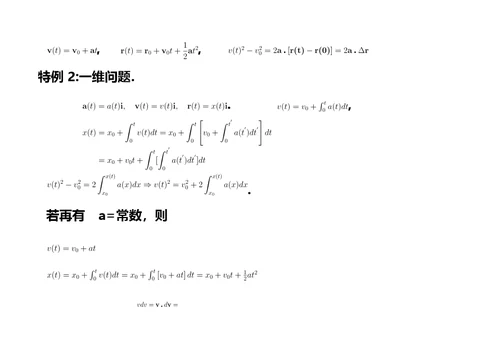 v(t) = v₀ + at, r(t) = r₀ + v₀t + \frac{1}{2}at², v(t)² − v₀² = 2a · [r(t) − r(0)] = 2a · Δr
特例 2:一维问题.
a(t) = a(t)i, v(t) = v(t)i, r(t) = x(t)i. v(t) = v₀ + ∫₀ᵗ a(t)dt,
x(t) = x₀ + ∫₀ᵗ v(t)dt = x₀ + ∫₀ᵗ [v₀ + ∫₀^{t′} a(t′)dt′] dt
= x₀ + v₀t + ∫₀ᵗ [∫₀^{t′} a(t′)dt′]dt
v(t)² − v₀² = 2 ∫_{x₀}^{x(t)} a(x)dx ⇒ v(t)² = v₀² + 2 ∫_{x₀}^{x(t)} a(x)dx.
若再有 a=常数，则
v(t) = v₀ + at
x(t) = x₀ + ∫₀ᵗ v(t)dt = x₀ + ∫₀ᵗ [v₀ + at] dt = x₀ + v₀t + \frac{1}{2}at²
vdv = v · dv =